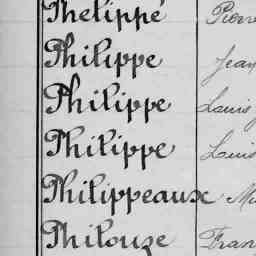 Phelippé Pierre
Philippe Jean
Philippe Louis
Philippe Louis
Philippeaux
Philouze Fran